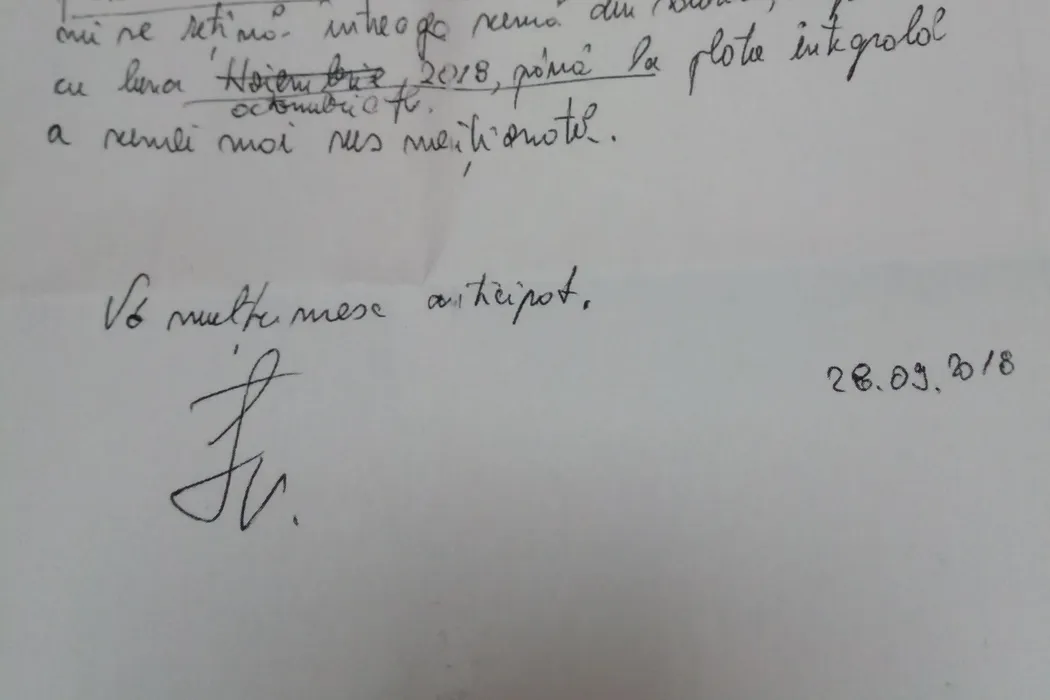 mi se rețină întreaga sumă din
cu luna Noiembrie, 2018, până la plata integrală
octombrie
a sumei mai sus menționate.
Vă mulțumesc anticipat.
28.09.2018